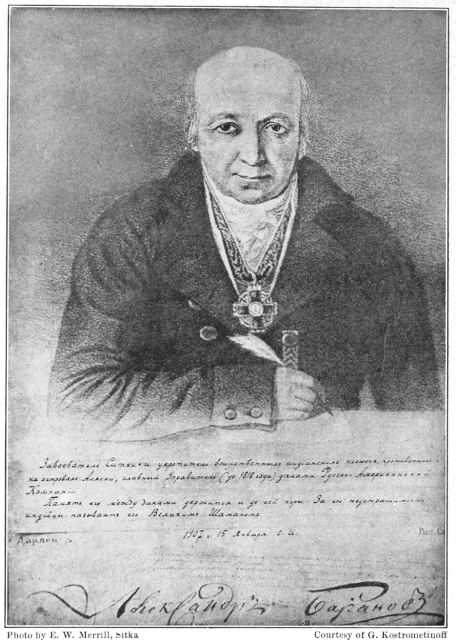 Завоеватель Ситки и укротитель воинственных индианских племен, проживавших
на островах Аляски, главный Управитель (до 1818 года) делами Русско-Американской
Компании
Память его между дикими держится и до сей поры. За его неустрашимость
индейцы называют его Великим Шаманом.
1907 г. 15 Января
Александръ Барановъ
Photo by E. W. Merrill, Sitka
Courtesy of G. Kostrometinoff